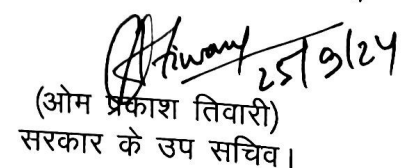 Tiwary 25/9/24
(ओम प्रकाश तिवारी)
सरकार के उप सचिव।